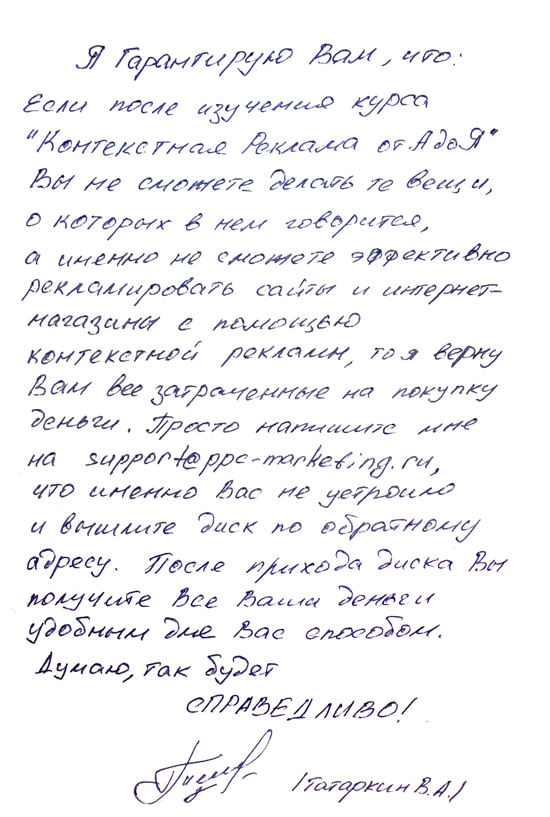 Я Гарантирую Вам, что:
Если после изучения курса
"Контекстная Реклама от А до Я"
Вы не сможете делать те вещи,
о которых в нем говорится,
а именно не сможете эффективно
рекламировать сайты и интернет-
магазины с помощью
контекстной рекламы, то я верну
Вам все затраченные на покупку
деньги. Просто напишите мне
на support@ppc-marketing.ru,
что именно Вас не устроило
и вышлите диск по обратному
адресу. После прихода диска Вы
получите Все Ваши деньги
удобным для Вас способом.
Думаю, так будет
СПРАВЕДЛИВО!
/Татаркин В.А./